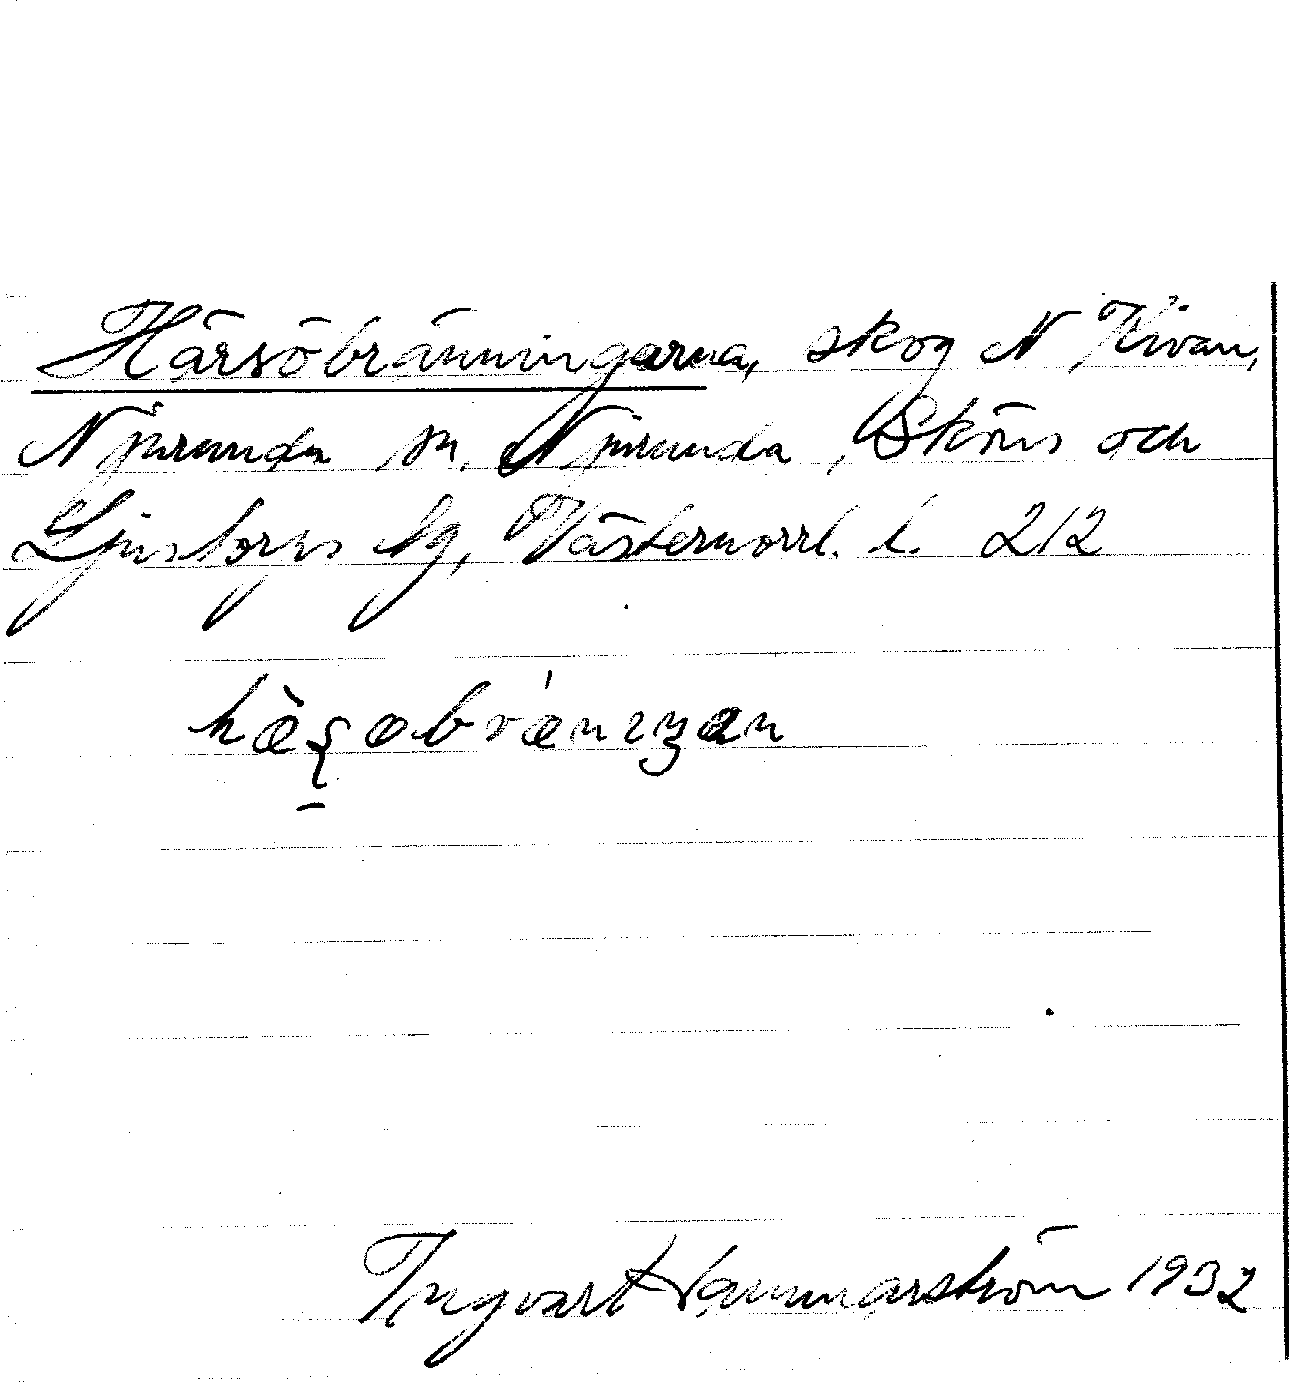 Härsöbränningarna, skog N Kivan,
Njurunda sn. Njurunda, Sköns och
Ljustorps tg, Västernorrl. l. 212
Ingvart Hammarström 1932